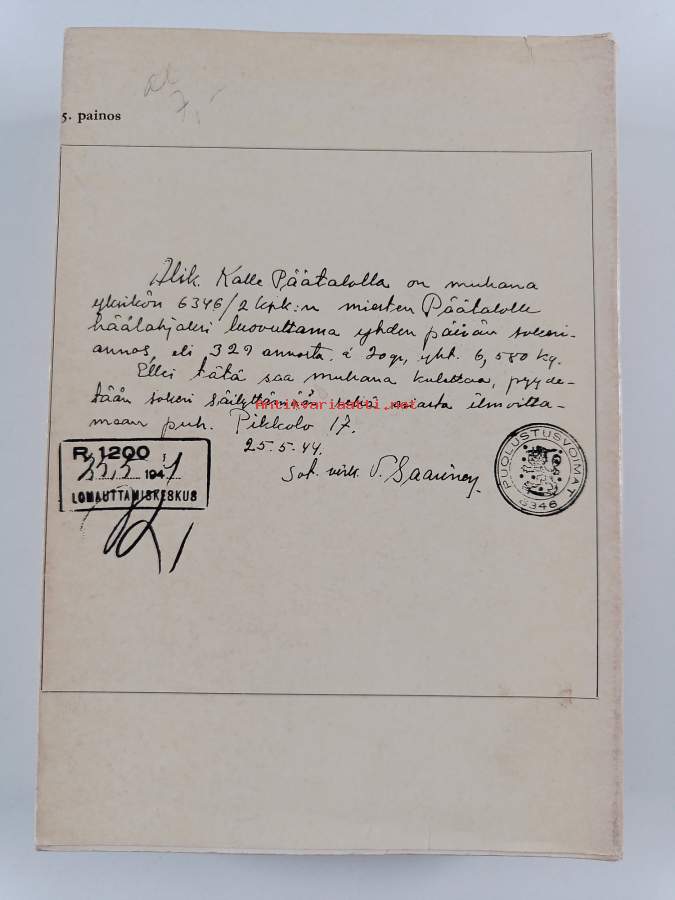 al
7,-
5. painos
Alik. Kalle Päätalolla on mukana
yksikön 6346/2 kpk:n miesten Päätalolle
häälahjaksi luovuttama yhden päivän sokeri-
annos, eli 329 annosta á 20 gr, yht. 6,580 kg.
Ellei tätä saa mukana kulettaa, pyyde-
tään sokeri säilyttämään sekä asiasta ilmoitta-
maan puh. Pikkolo 17.
25.5.44.
Sot. virk. V. Saarinen.
Antikvariaatti.net
R 1200
25.5 1944
LOMAUTTAMISKESKUS
PUOLUSTUSVOIMAT
6346